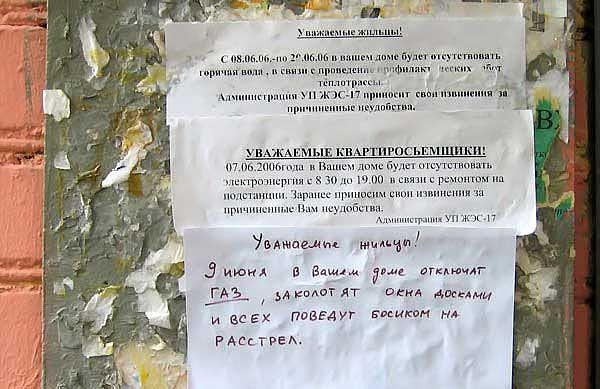 Уважаемые жильцы!
С 08.06.06.-по 29.06.06 в вашем доме будет отсутствовать
горячая вода , в связи с проведение профилактических работ
теплотрассы.
Администрация УП ЖЭС-17 приносит свои извинения за
причиненные неудобства.
УВАЖАЕМЫЕ КВАРТИРОСЬЕМЩИКИ!
07.06.2006года в Вашем доме будет отсутствовать
электроэнергия с 8 30 до 19.00 в связи с ремонтом на
подстанции. Заранее приносим свои извинения за
причиненные Вам неудобства.
Администрация УП ЖЭС-17
Уважаемые жильцы!
9 июня в Вашем доме отключат
ГАЗ , заколотят окна досками
и всех поведут босиком на
расстрел.
В